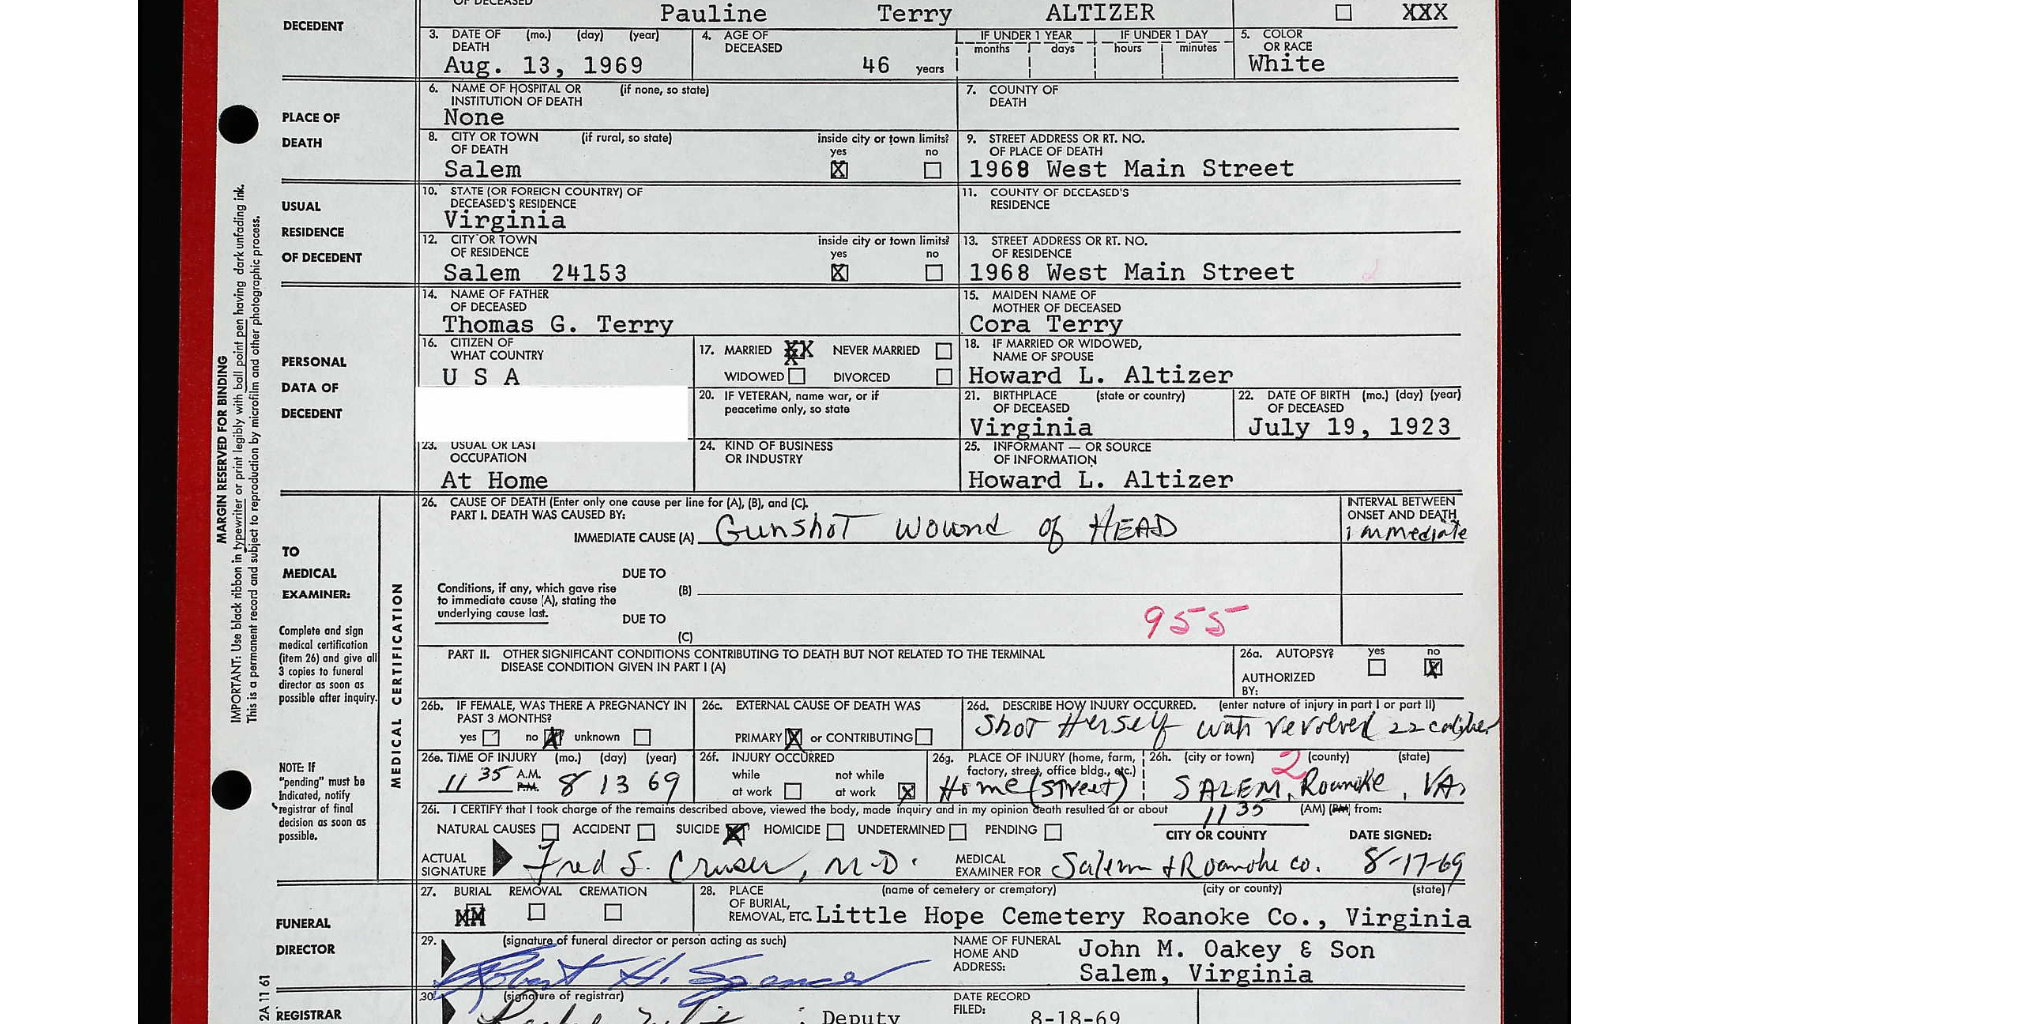 OF DECEASED
DECEDENT
Pauline Terry ALTIZER
XXX
3. DATE OF DEATH (mo.) (day) (year)
Aug. 13, 1969
4. AGE OF DECEASED
46 years
IF UNDER 1 YEAR
months days
IF UNDER 1 DAY
hours minutes
5. COLOR OR RACE
White
PLACE OF DEATH
6. NAME OF HOSPITAL OR INSTITUTION OF DEATH (if none, so state)
None
7. COUNTY OF DEATH
8. CITY OR TOWN OF DEATH (if rural, so state)
inside city or town limits?
yes no
Salem X
9. STREET ADDRESS OR RT. NO. OF PLACE OF DEATH
1968 West Main Street
USUAL RESIDENCE OF DECEDENT
10. STATE (OR FOREIGN COUNTRY) OF DECEASED'S RESIDENCE
Virginia
11. COUNTY OF DECEASED'S RESIDENCE
12. CITY OR TOWN OF RESIDENCE
inside city or town limits?
yes no
Salem 24153 X
13. STREET ADDRESS OR RT. NO. OF RESIDENCE
1968 West Main Street
PERSONAL DATA OF DECEDENT
14. NAME OF FATHER OF DECEASED
Thomas G. Terry
15. MAIDEN NAME OF MOTHER OF DECEASED
Cora Terry
16. CITIZEN OF WHAT COUNTRY
U S A
17. MARRIED XX NEVER MARRIED
WIDOWED DIVORCED
18. IF MARRIED OR WIDOWED, NAME OF SPOUSE
Howard L. Altizer
20. IF VETERAN, name war, or if peacetime only, so state
21. BIRTHPLACE OF DECEASED (state or country)
Virginia
22. DATE OF BIRTH OF DECEASED (mo.) (day) (year)
July 19, 1923
23. USUAL OR LAST OCCUPATION
At Home
24. KIND OF BUSINESS OR INDUSTRY
25. INFORMANT — OR SOURCE OF INFORMATION
Howard L. Altizer
MARGIN RESERVED FOR BINDING
IMPORTANT: Use black ribbon in typewriter or print legibly with ball point pen having dark unfading ink.
This is a permanent record and subject to reproduction by microfilm and other photographic process.
TO MEDICAL EXAMINER:
Complete and sign
medical certification
(item 26) and give all
3 copies to funeral
director as soon as
possible after inquiry.
NOTE: If
"pending" must be
indicated, notify
registrar of final
decision as soon as
possible.
MEDICAL CERTIFICATION
26. CAUSE OF DEATH (Enter only one cause per line for (A), (B), and (C).
PART I. DEATH WAS CAUSED BY:
IMMEDIATE CAUSE (A) Gunshot Wound of HEAD
INTERVAL BETWEEN ONSET AND DEATH
immediate
DUE TO
Conditions, if any, which gave rise
to immediate cause (A), stating the
underlying cause last.
(B)
DUE TO
(C)
955
PART II. OTHER SIGNIFICANT CONDITIONS CONTRIBUTING TO DEATH BUT NOT RELATED TO THE TERMINAL
DISEASE CONDITION GIVEN IN PART I (A)
26a. AUTOPSY? yes no X
AUTHORIZED BY:
26b. IF FEMALE, WAS THERE A PREGNANCY IN PAST 3 MONTHS?
yes no X unknown
26c. EXTERNAL CAUSE OF DEATH WAS
PRIMARY X or CONTRIBUTING
26d. DESCRIBE HOW INJURY OCCURRED. (enter nature of injury in part I or part II)
Shot Herself with revolver 22 caliber
26e. TIME OF INJURY (mo.) (day) (year)
11 35 A.M. P.M. 8 13 69
26f. INJURY OCCURRED
while at work not while at work X
26g. PLACE OF INJURY (home, farm, factory, street, office bldg., etc.)
Home (street)
26h. (city or town) (county) (state)
2
SALEM, Roanoke, VA.
26i. I CERTIFY that I took charge of the remains described above, viewed the body, made inquiry and in my opinion death resulted at or about 11 35 (AM) (PM) from:
NATURAL CAUSES ACCIDENT SUICIDE X HOMICIDE UNDETERMINED PENDING
CITY OR COUNTY DATE SIGNED:
ACTUAL SIGNATURE Fred S. Cruser, M.D.
MEDICAL EXAMINER FOR Salem & Roanoke co. 8-17-69
FUNERAL DIRECTOR
27. BURIAL REMOVAL CREMATION
XX
28. PLACE OF BURIAL, REMOVAL, ETC. (name of cemetery or crematory) (city or county) (state)
Little Hope Cemetery Roanoke Co., Virginia
29. (signature of funeral director or person acting as such)
Robert H. Spencer
NAME OF FUNERAL HOME AND ADDRESS:
John M. Oakey & Son
Salem, Virginia
2A 11 61
REGISTRAR
30. (signature of registrar)
Deputy
DATE RECORD FILED:
8-18-69